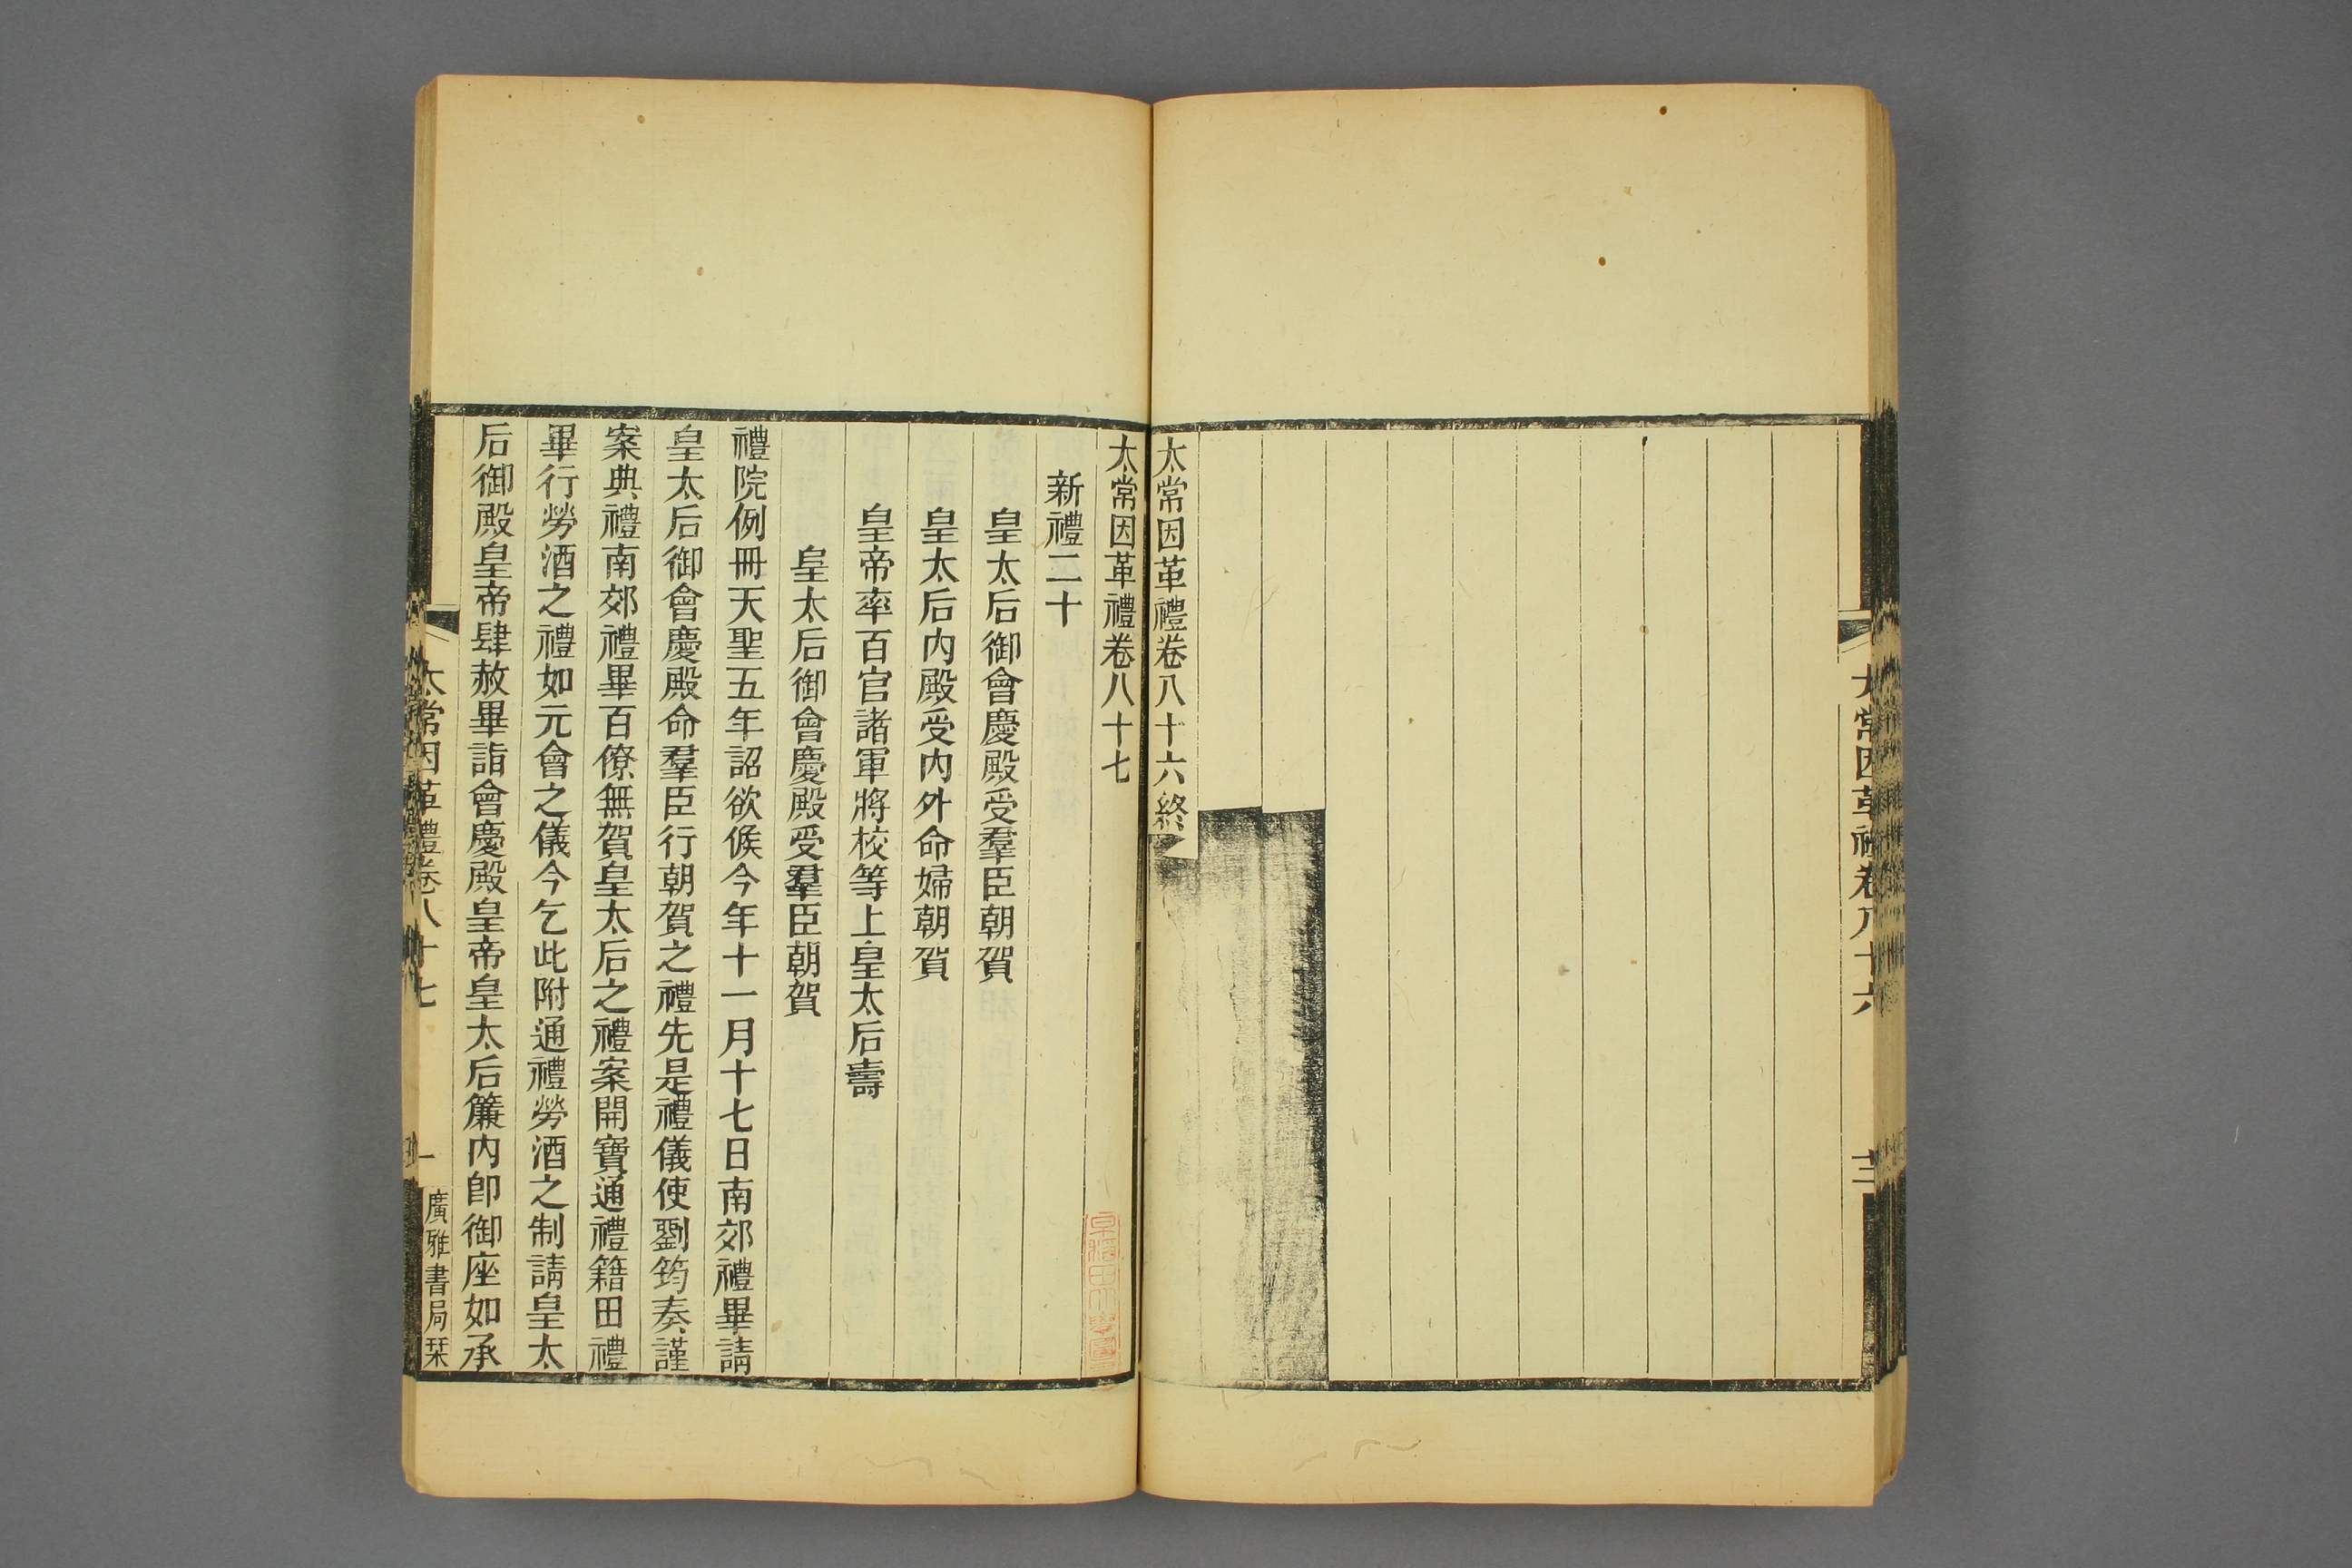 太常因革禮卷八十六
太常因革禮卷八十六終
太常因革禮卷八十七
新禮二十
皇太后御會慶殿受羣臣朝賀
皇太后內殿受內外命婦朝賀
皇帝率百官諸軍將校等上皇太后壽
皇太后御會慶殿受羣臣朝賀
禮院例冊天聖五年詔欲候今年十一月十七日南郊禮畢請
皇太后御會慶殿命羣臣行朝賀之禮先是禮儀使劉筠奏謹
案典禮南郊禮畢百僚無賀皇太后之禮案開寶通禮籍田禮
畢行勞酒之禮如元會之儀今乞此附通禮勞酒之制請皇太
后御殿皇帝肆赦畢詣會慶殿皇帝皇太后簾內卽御座如承
太常因革禮卷八十七
一
廣雅書局栞